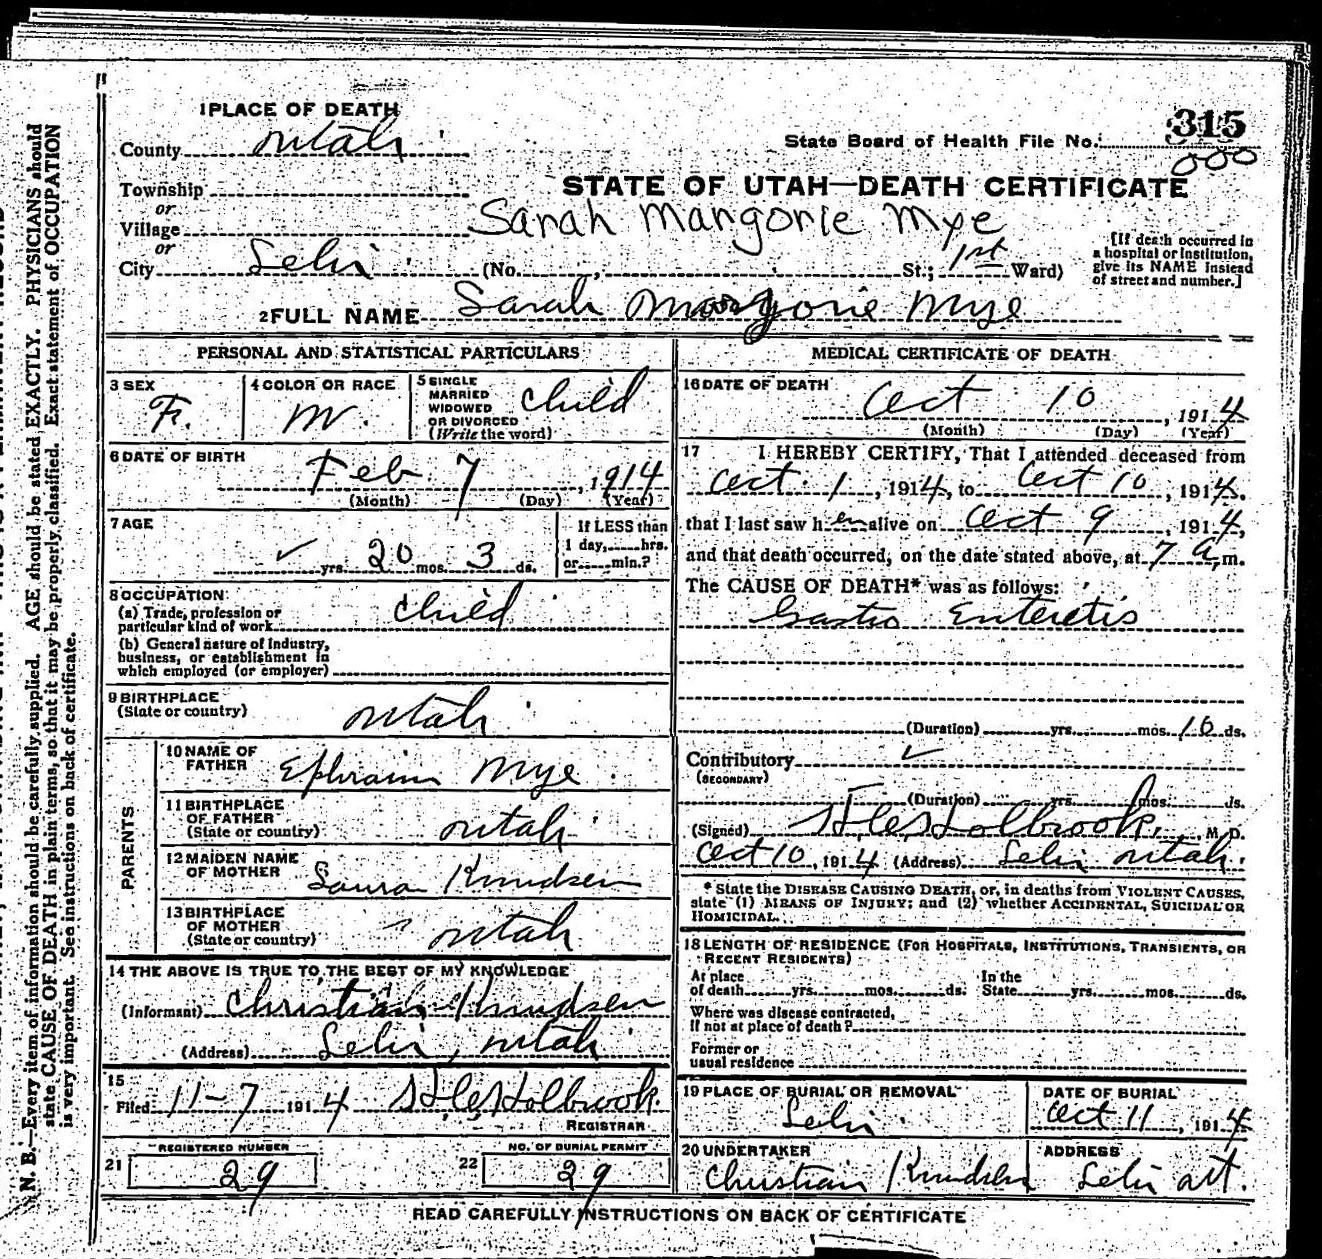 1 PLACE OF DEATH
County Utah
State Board of Health File No. 315
000
Township
or
Village
or
City Lehi
STATE OF UTAH—DEATH CERTIFICATE
Sarah Margorie Mye
(No. , St.; 1st Ward)
[If death occurred in a hospital or institution, give its NAME instead of street and number.]
2 FULL NAME Sarah Margorie Mye
PERSONAL AND STATISTICAL PARTICULARS
3 SEX
F.
4 COLOR OR RACE
W.
5 SINGLE MARRIED WIDOWED OR DIVORCED (Write the word) Child
6 DATE OF BIRTH
Feb 7, 1914
(Month) (Day) (Year)
7 AGE
✓ yrs. 20 mos. 3 ds.
If LESS than 1 day, hrs. or min.?
8 OCCUPATION
(a) Trade, profession or particular kind of work Child
(b) General nature of industry, business, or establishment in which employed (or employer)
9 BIRTHPLACE
(State or country) Utah
PARENTS
10 NAME OF FATHER Ephraim Mye
11 BIRTHPLACE OF FATHER (State or country) Utah
12 MAIDEN NAME OF MOTHER Laura Knudsen
13 BIRTHPLACE OF MOTHER (State or country) Utah
14 THE ABOVE IS TRUE TO THE BEST OF MY KNOWLEDGE
(Informant) Christian Knudsen
(Address) Lehi, Utah
15
Filed 11-7 1914
REGISTRAR
REGISTERED NUMBER
21 29
NO. OF BURIAL PERMIT
22 29
MEDICAL CERTIFICATE OF DEATH
16 DATE OF DEATH
Oct 10, 1914
(Month) (Day) (Year)
17 I HEREBY CERTIFY, That I attended deceased from
Oct. 1, 1914, to Oct 10, 1914.
that I last saw her alive on Oct 9, 1914,
and that death occurred, on the date stated above, at 7 A.m.
The CAUSE OF DEATH* was as follows:
Gastro Enteretis
(Duration) yrs. mos. 10 ds.
Contributory ✓
(SECONDARY)
(Duration) yrs. mos. ds.
(Signed) Holbrook, M. D.
Oct 10, 1914 (Address) Lehi Utah.
* State the DISEASE CAUSING DEATH, or, in deaths from VIOLENT CAUSES,
state (1) MEANS OF INJURY; and (2) whether ACCIDENTAL, SUICIDAL OR
HOMICIDAL.
18 LENGTH OF RESIDENCE (FOR HOSPITALS, INSTITUTIONS, TRANSIENTS, OR
RECENT RESIDENTS)
At place of death yrs. mos. ds. In the State yrs. mos. ds.
Where was disease contracted,
if not at place of death?
Former or
usual residence
19 PLACE OF BURIAL OR REMOVAL
Lehi
DATE OF BURIAL
Oct 11, 1914
20 UNDERTAKER
Christian Knudsen
ADDRESS
Lehi Ut.
READ CAREFULLY INSTRUCTIONS ON BACK OF CERTIFICATE
N. B.—Every item of information should be carefully supplied. AGE should be stated EXACTLY. PHYSICIANS should
state CAUSE OF DEATH in plain terms, so that it may be properly classified. Exact statement of OCCUPATION
is very important. See instructions on back of certificate.